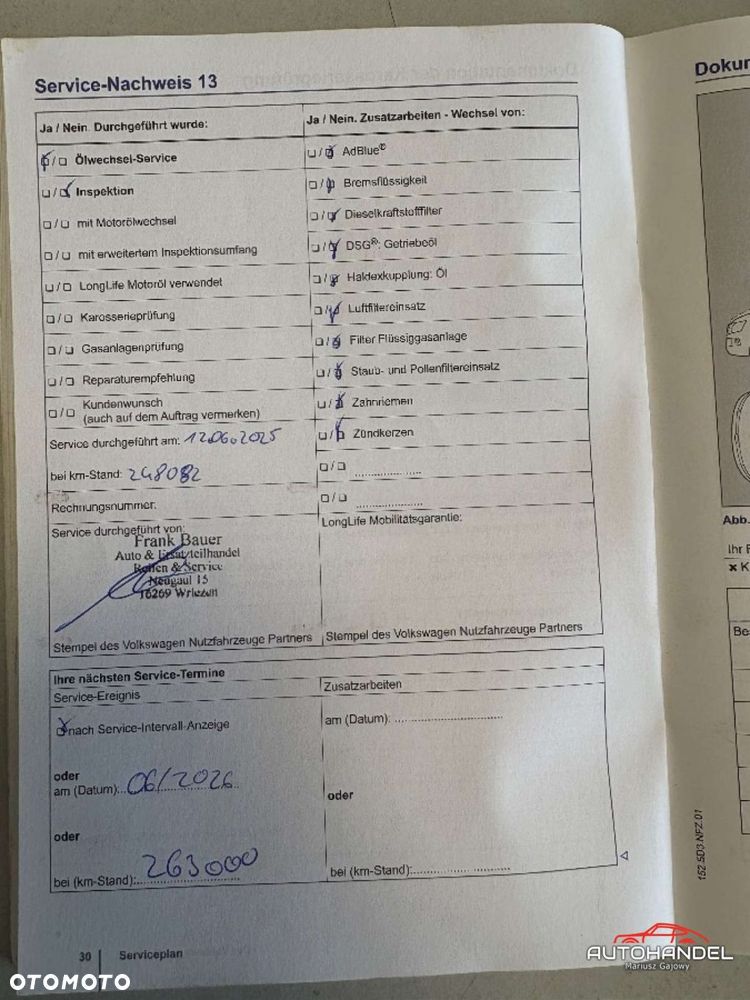 Service-Nachweis 13
Ja / Nein. Durchgeführt wurde:
Ölwechsel-Service
Inspektion
mit Motorölwechsel
mit erweitertem Inspektionsumfang
LongLife Motoröl verwendet
Karosserieprüfung
Gasanlagenprüfung
Reparaturempfehlung
Kundenwunsch
(auch auf dem Auftrag vermerken)
Service durchgeführt am: 12.06.2025
bei km-Stand: 248082
Rechnungsnummer:
Service durchgeführt von:
Frank Bauer
Auto & Ersatzteilhandel
Reifen & Service
Neugaul 15
16269 Wriezen
Stempel des Volkswagen Nutzfahrzeuge Partners
Ja / Nein. Zusatzarbeiten - Wechsel von:
AdBlue®
Bremsflüssigkeit
Dieselkraftstofffilter
DSG®: Getriebeöl
Haldexkupplung: Öl
Luftfiltereinsatz
Filter Flüssiggasanlage
Staub- und Pollenfiltereinsatz
Zahnriemen
Zündkerzen
LongLife Mobilitätsgarantie:
Stempel des Volkswagen Nutzfahrzeuge Partners
Ihre nächsten Service-Termine
Service-Ereignis
nach Service-Intervall-Anzeige
oder
am (Datum): 06/2026
oder
bei (km-Stand): 263000
Zusatzarbeiten
am (Datum):
oder
bei (km-Stand):
30 Serviceplan
Dokur
Abb.
Ihr F
× K
Be
152.5D3.NFZ.01
AUTOHANDEL
Mariusz Gajowy
OTOMOTO